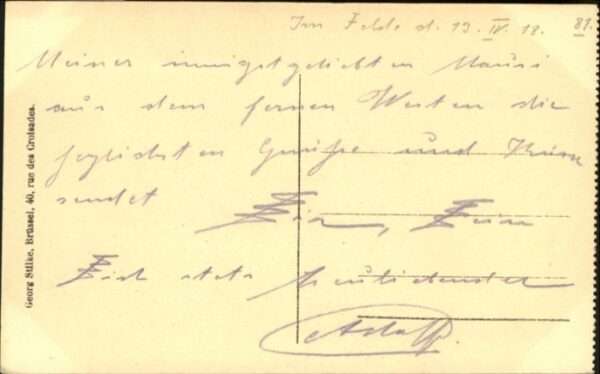 Im Felde d. 13. IV. 18. 81.
Meiner innigstgeliebten Mausi
aus dem fernen Westen die
herzlichsten Grüße und Küsse
sendet
Dein, Dein
Dich stets heißliebender
Adolf.
Georg Stilke, Brüssel, 40, rue des Croisades.